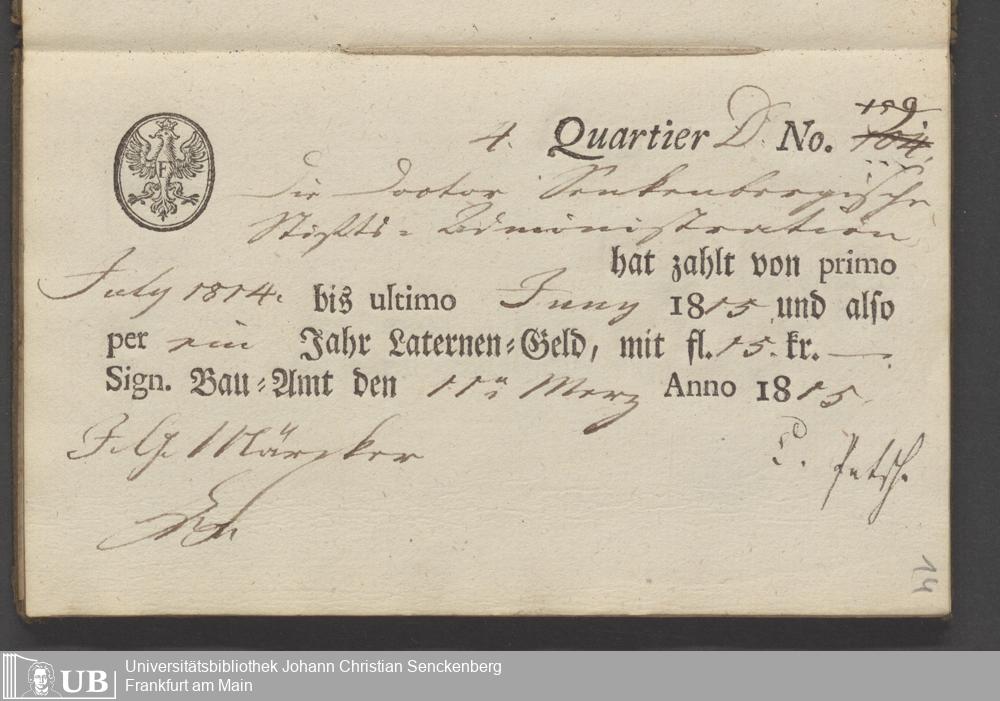 159.
4. Quartier D. No. 104.
Die Doctor Senkenbergische
Stiffts-Administration
hat zahlt von primo
July 1814. bis ultimo Juny 1815 und also
per ein Jahr Laternen-Geld, mit fl. 15. kr. —.
Sign. Bau-Amt den 11n Merz Anno 1815.
F. G. Märcker
14
UB
Universitätsbibliothek Johann Christian Senckenberg
Frankfurt am Main